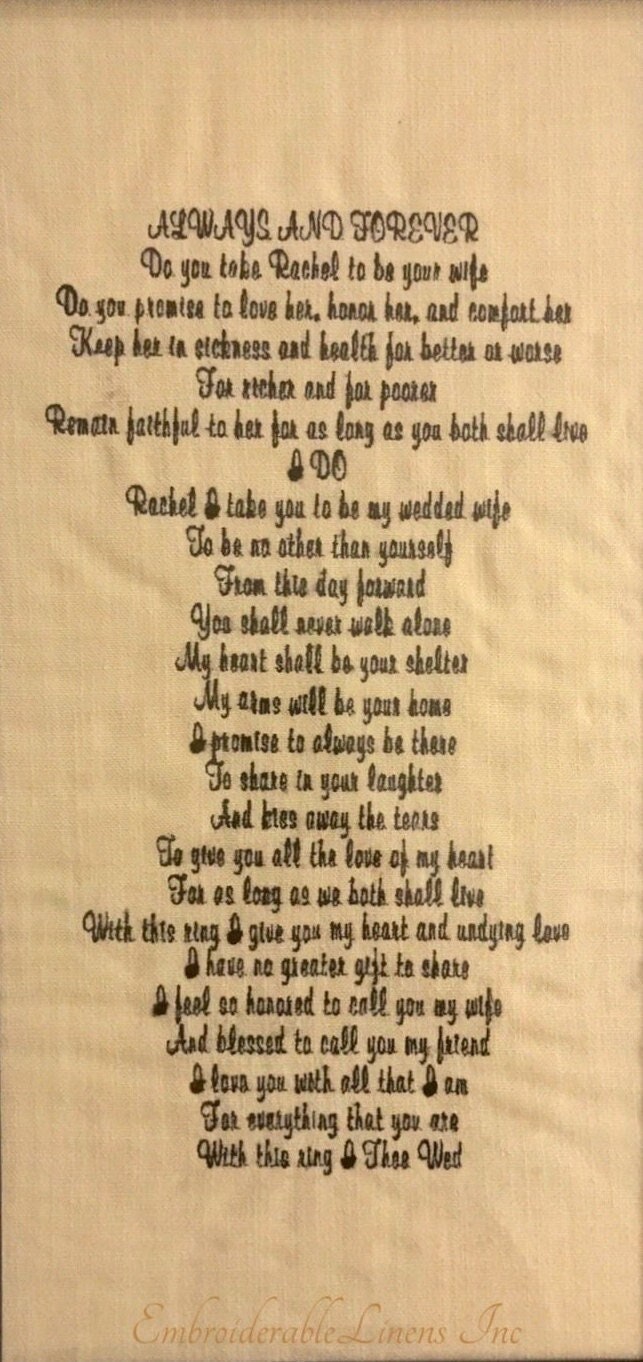 ALWAYS AND FOREVER
Do you take Rachel to be your wife
Do you promise to love her, honor her, and comfort her
Keep her in sickness and health for better or worse
For richer and for poorer
Remain faithful to her for as long as you both shall live
I DO
Rachel I take you to be my wedded wife
To be no other than yourself
From this day forward
You shall never walk alone
My heart shall be your shelter
My arms will be your home
I promise to always be there
To share in your laughter
And kiss away the tears
To give you all the love of my heart
For as long as we both shall live
With this ring I give you my heart and undying love
I have no greater gift to share
I feel so honored to call you my wife
And blessed to call you my friend
I love you with all that I am
For everything that you are
With this ring I Thee Wed
EmbroiderableLinens Inc